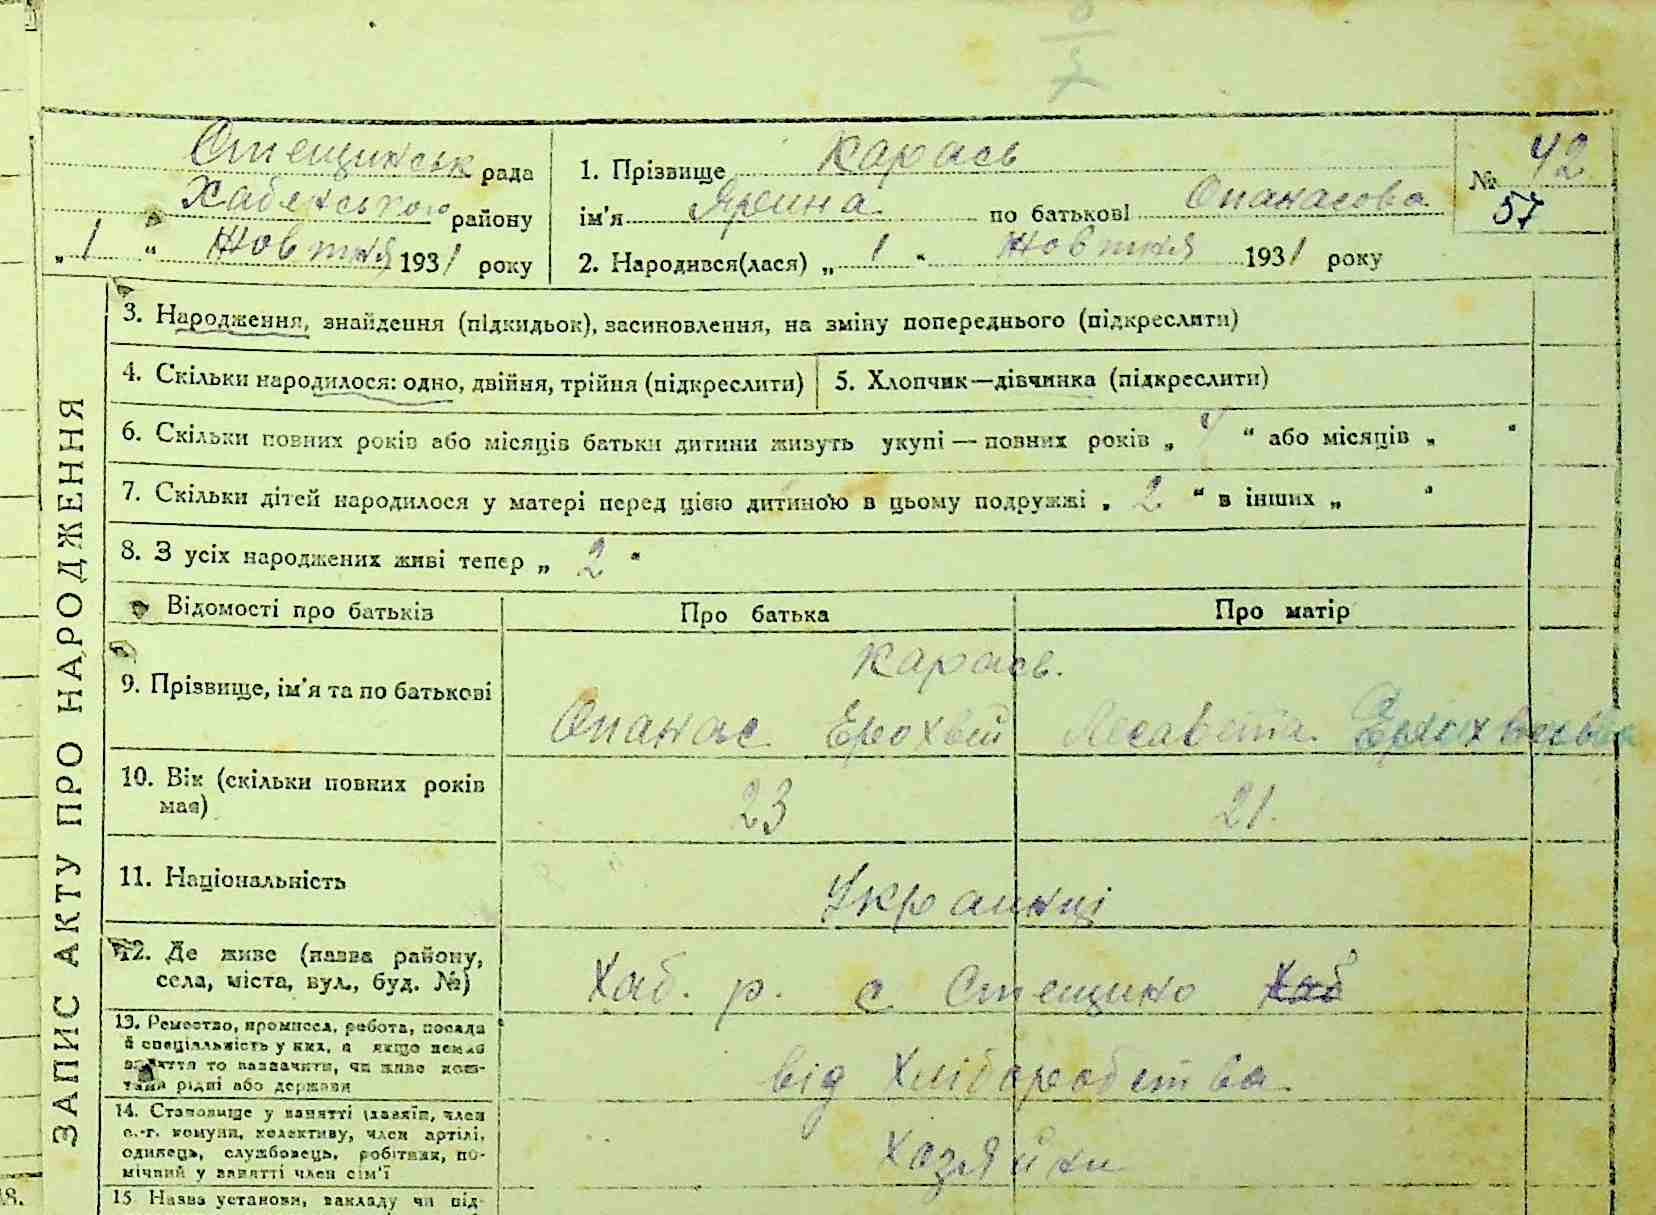 Стещинськ рада
Хабенського району
„ 1 “ Жовтня 1931 року
1. Прізвище Карась
ім'я Ярина по батькові Опанасова
2. Народився(лася) „ 1 “ Жовтня 1931 року
№ 42
57
3. Народження, знайдення (підкидьок), засиновлення, на зміну попереднього (підкреслити)
4. Скільки народилося: одно, двійня, трійня (підкреслити)
5. Хлопчик—дівчинка (підкреслити)
6. Скільки повних років або місяців батьки дитини живуть укупі — повних років „ 4 “ або місяців „ “
7. Скільки дітей народилося у матері перед цією дитиною в цьому подружжі „ 2 “ в інших „ “
8. З усіх народжених живі тепер „ 2 “
Відомості про батьків Про батька Про матір
9. Прізвище, ім'я та по батькові
Карась.
Опанас Ерохвей Лесавета
10. Вік (скільки повних років
має)
23 21.
11. Національність
Украинці
12. Де живе (назва району,
села, міста, вул., буд. №)
Хаб. р. с Стещино Хаб
13. Ремество, промисел, робота, посада
й спеціяльність у них, а якщо немає
заняття то зазначити, чи живе кош-
тами рідні або держави
від Хліборобства
14. Становище у занятті (хазяїн, член
с.-г. комуни, колективу, член артілі,
одинець, службовець, робітник, по-
мічний у занятті член сім'ї
Хозяйки
15 Назва установи, закладу чи від-
ЗАПИС АКТУ ПРО НАРОДЖЕННЯ
18.